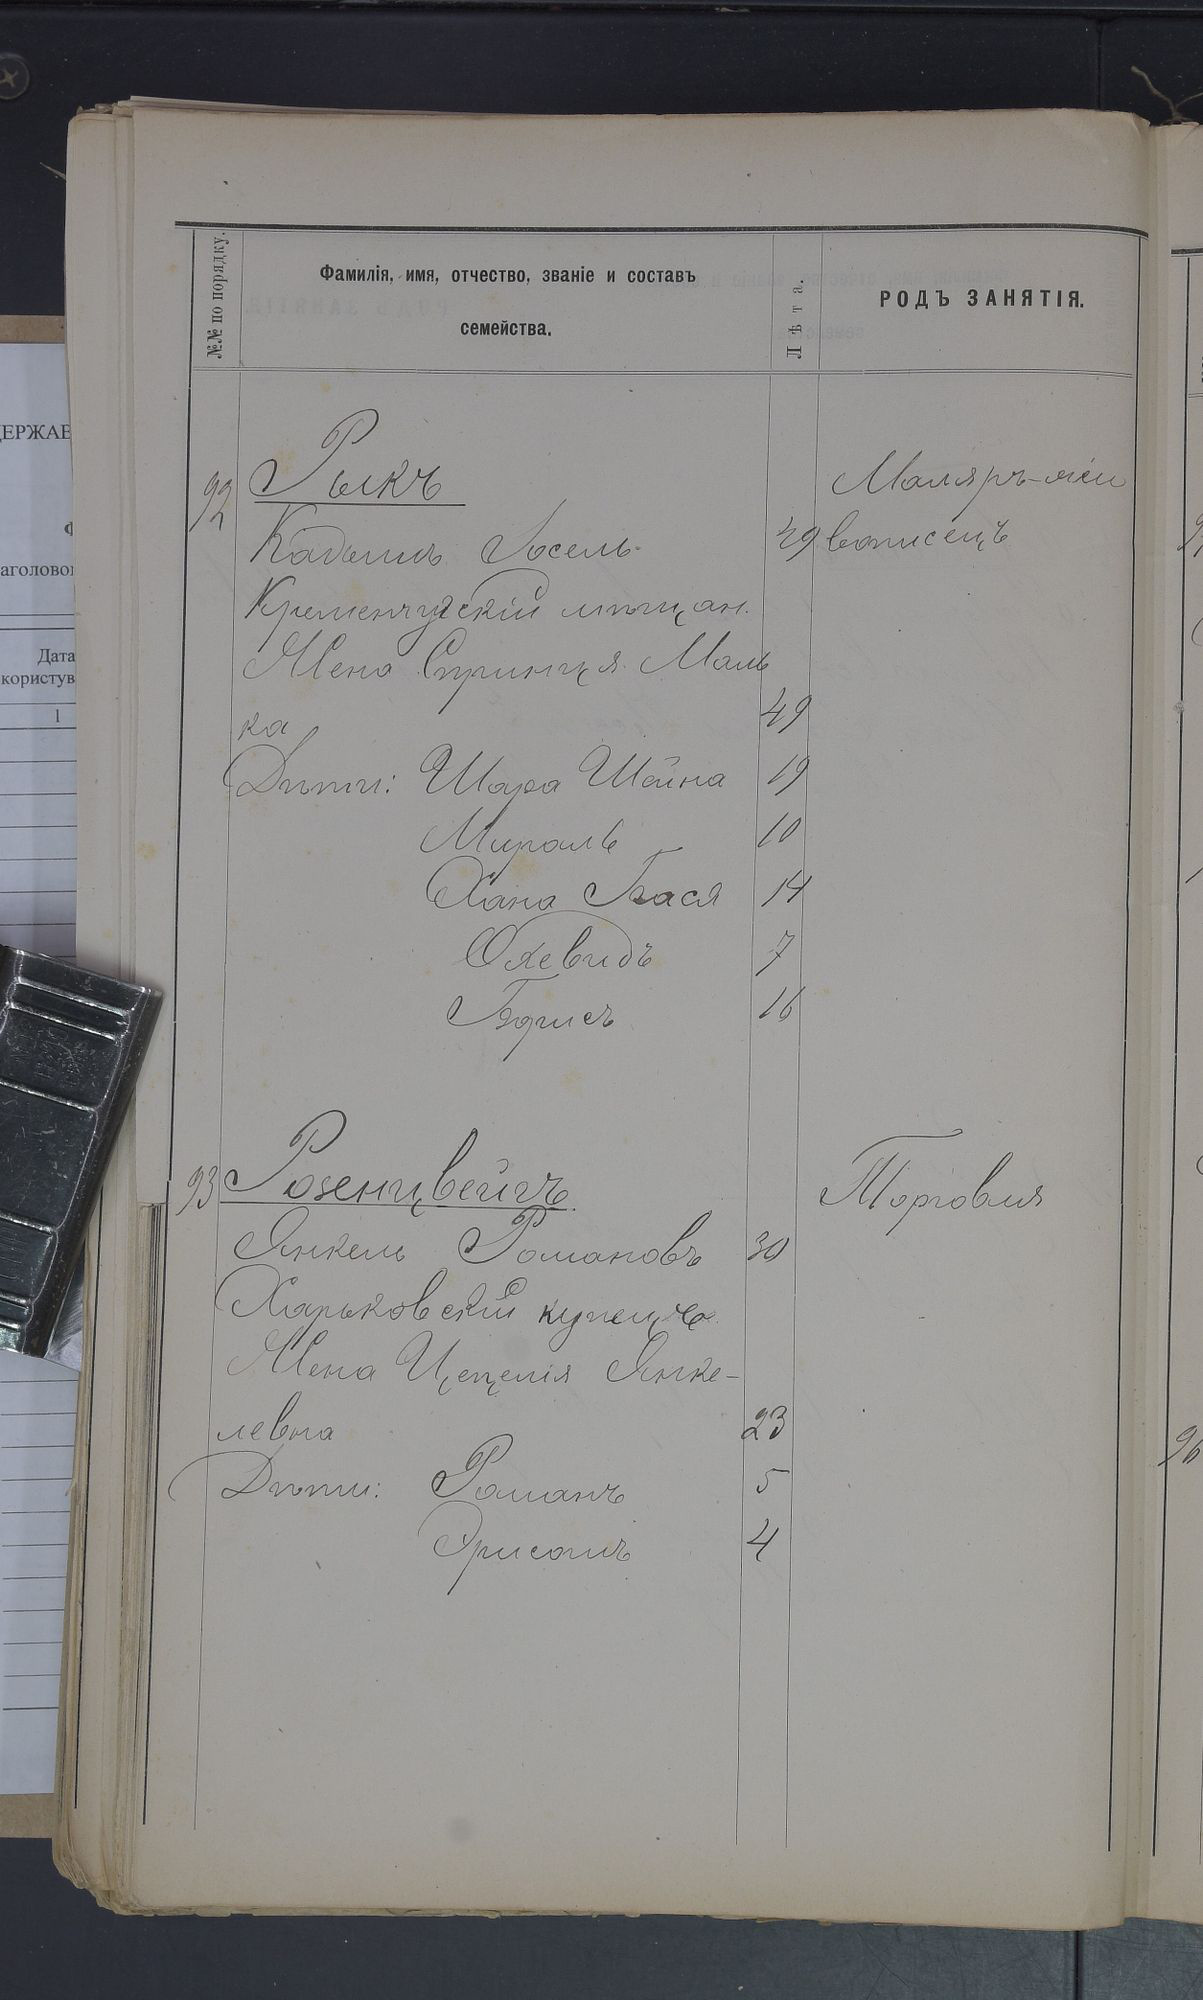 №№ по порядку.
Фамилія, имя, отчество, званіе и составъ
семейства.
Лѣта.
РОДЪ ЗАНЯТІЯ.
92 Рыкъ
Маляръ-жи
Кадышъ Іосель 49 вописецъ
Кременчугскій мѣщан.
Жена Спринця Маль
ка 49
Дѣти: Шара Шейна 19
10
Хана Бася 14
7
Борисъ 16
93 Розенцвейгъ
Торговля
Янкель Романовъ 30
Харьковскій купецъ
Жена Цецелія Янке-
левна 23
Дѣти: Романъ 5
4
ДЕРЖАВ
аголовок
Дата
користув
1
96